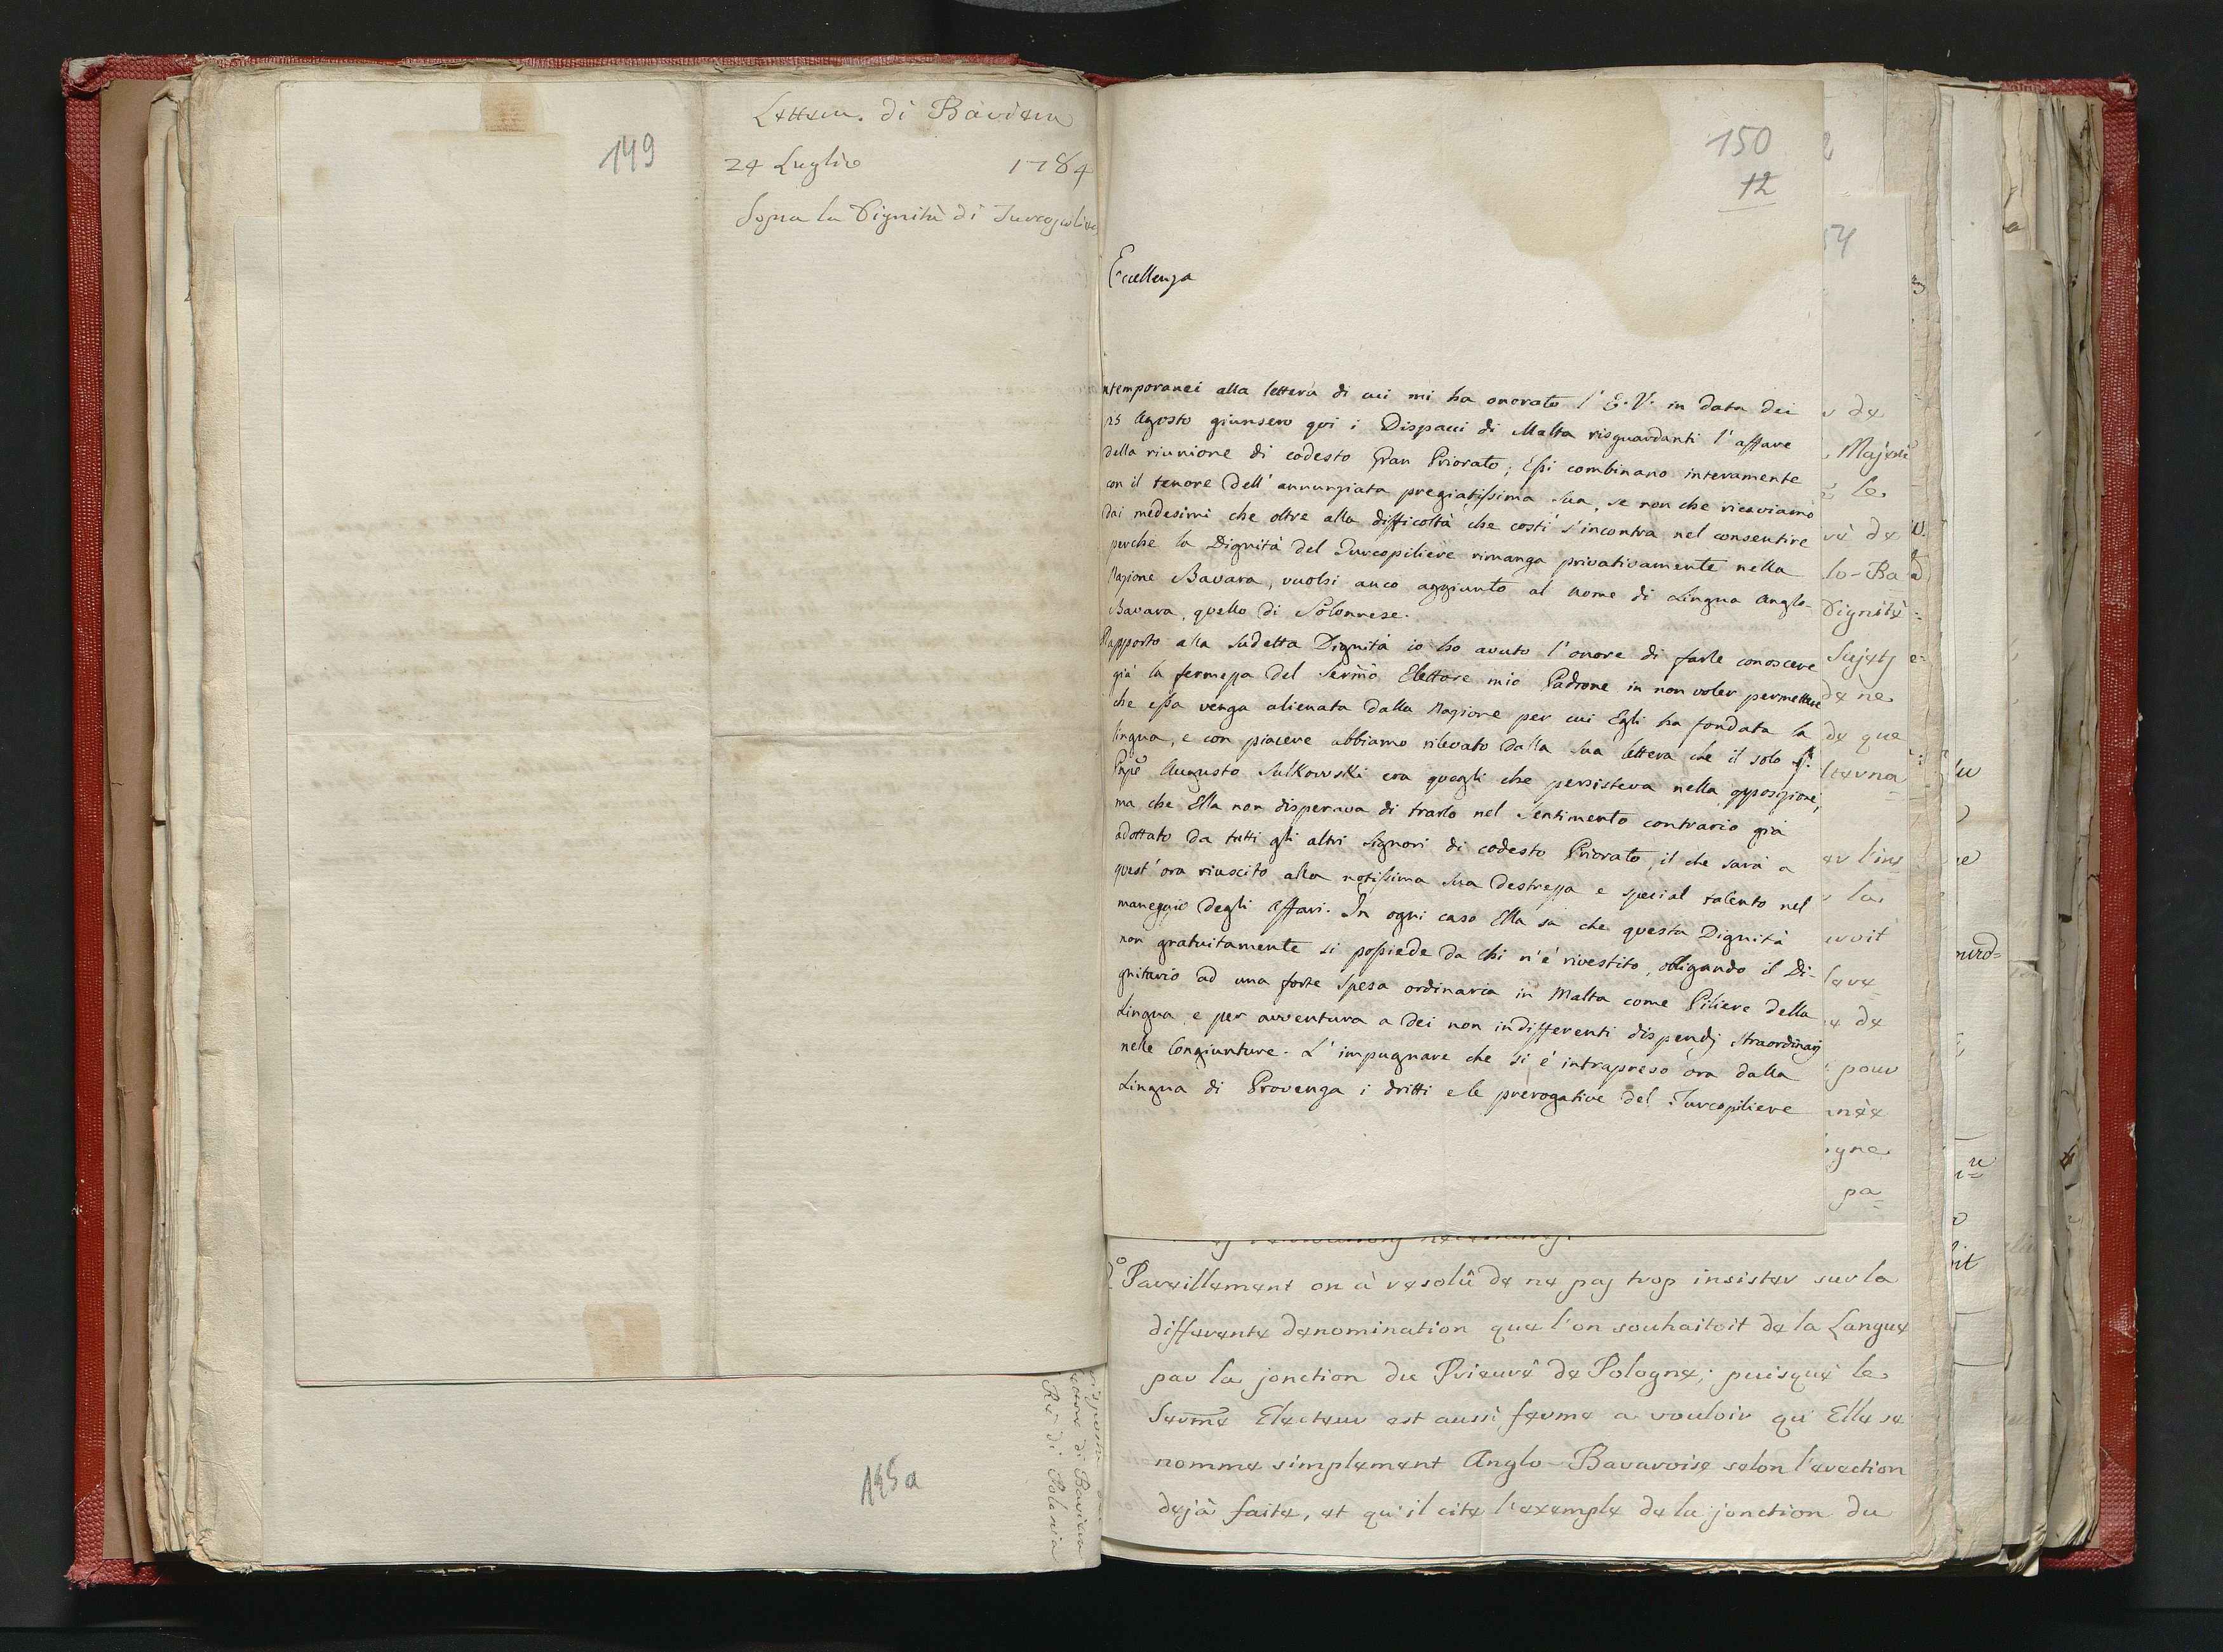 149
Lettera. di Baviera
24 Luglio 1784
Sopra la Dignità di Turcopolier
145a
Ré di Polonia
150
12
Eccellenza
ntemporanei alla lettera di cui mi ha onorato l' E. V. in data dei
25 Agosto giunsero qui i Dispacci di Malta risguardanti l' affare
della riunione di codesto Gran Priorato; Essi combinano interamente
con il tenore dell' annunziata pregiatissima Sua, se non che ricaviamo
dai medesimi che oltre alla difficoltà che costì s'incontra nel consentire
perche la Dignità del Turcopiliere rimanga privativamente nella
Nazione Bavara, vuolsi anco aggiunto al nome di Lingua Anglo-
Bavara, quello di Polonnese.
Rapporto alla sudetta Dignità io ho avuto l'onore di farle conoscere
già la fermezza del Sermo Elettore mio Padrone in non voler permettere
che essa venga alienata dalla Nazione per cui Egli ha fondata la
lingua, e con piacere abbiamo rilevato dalla sua lettera che il solo Sr.
Pnpe Augusto Sulkowski era quegli che persisteva nella opposizione,
ma che Ella non disperava di trarlo nel sentimento contrario già
adottato da tutti gli altri Signori di codesto Priorato, il che sarà a
quest' ora riuscito alla notissima sua destrezza e special talento nel
maneggio degli Affari. In ogni caso Ella sà che questa Dignità
non gratuitamente si possiede da chi n'é rivestito, obligando il Di-
gnitario ad una forte spesa ordinaria in Malta come Piliere della
Lingua, e per avventura a dei non indifferenti dispendj straordinarj
nelle Congiunture. L' impugnare che si é intrapreso ora dalla
Lingua di Provenza i dritti e le prerogative del Turcopiliere
Pareillement on à resolû de ne pas trop insister sur la
differente denomination que l'on souhaitoit de la Langue
par la jonction du Prieuré de Pologne; puisque le
Serme Electeur est aussi ferme a vouloir qu' Elle se
nomme simplement Anglo-Bavaroise selon l'erection
dejà faite, et qu'il cite l'exemple de la jonction du